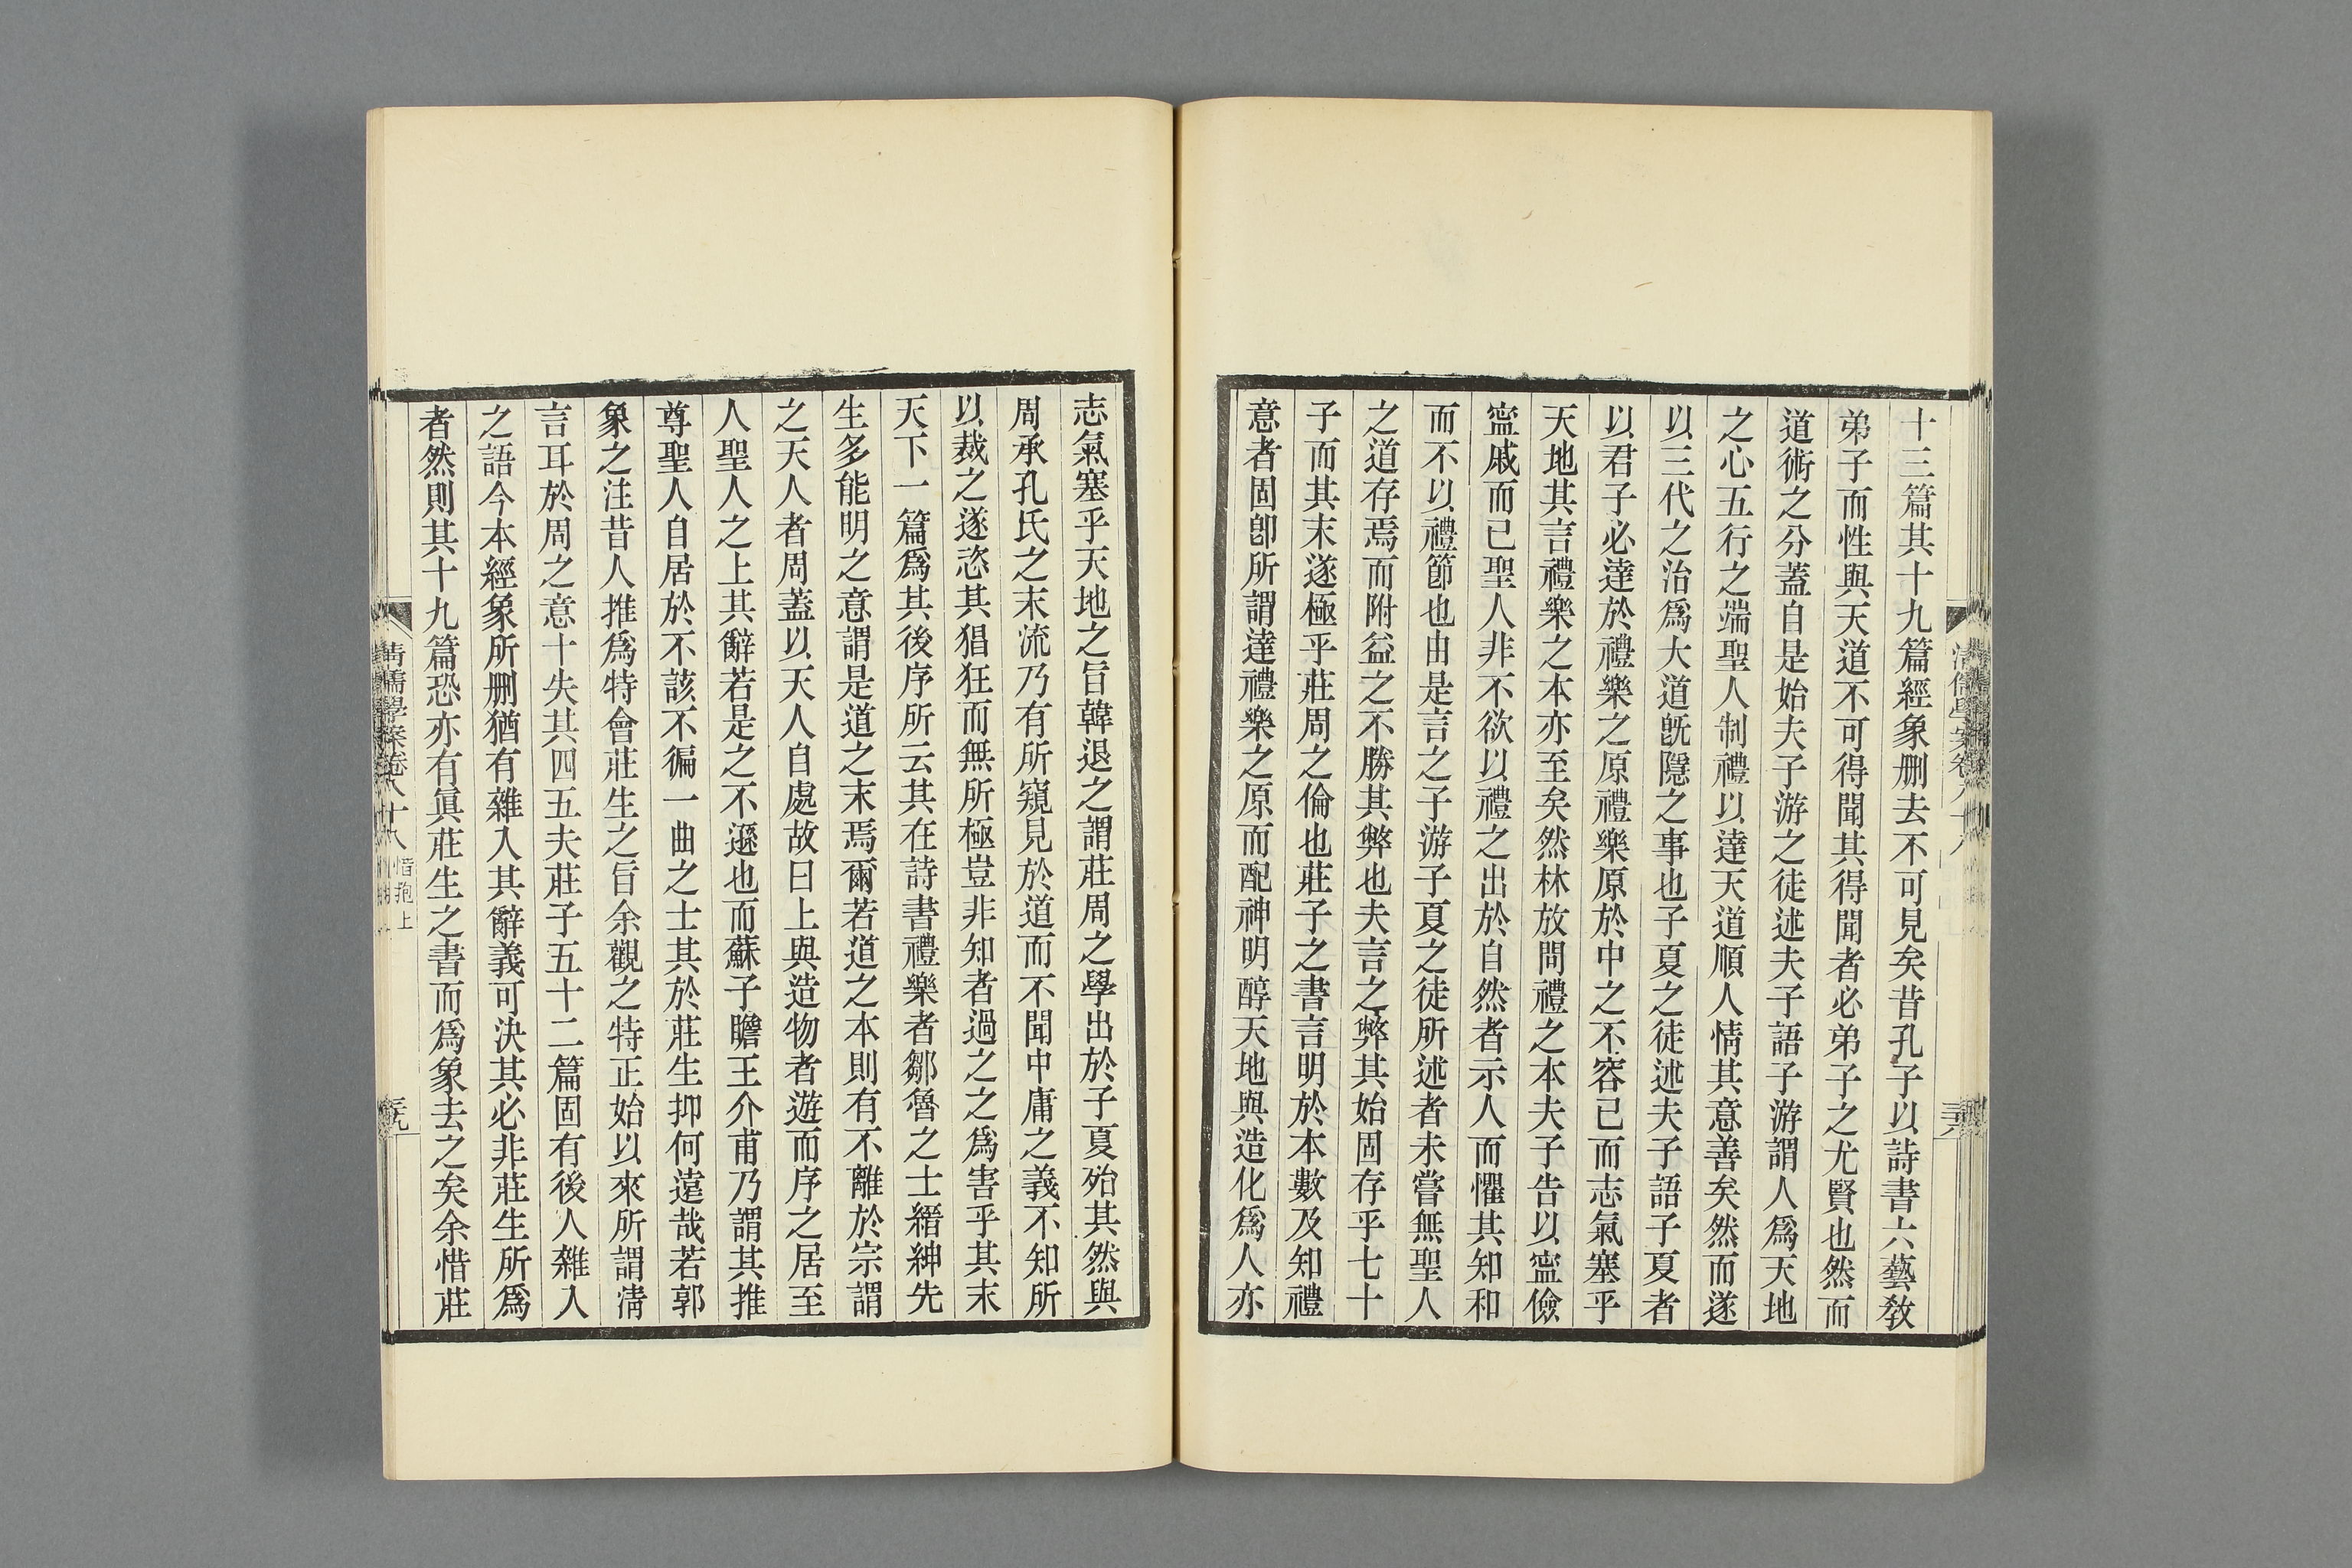 十三篇其十九篇經象删去不可見矣昔孔子以詩書六藝敎
弟子而性與天道不可得聞其得聞者必弟子之尤賢也然而
道術之分蓋自是始夫子游之徒述夫子語子游謂人爲天地
之心五行之端聖人制禮以達天道順人情其意善矣然而遂
以三代之治爲大道旣隱之事也子夏之徒述夫子語子夏者
以君子必達於禮樂之原禮樂原於中之不容已而志氣塞乎
天地其言禮樂之本亦至矣然林放問禮之本夫子告以寍儉
寍戚而已聖人非不欲以禮之出於自然者示人而懼其知和
而不以禮節也由是言之子游子夏之徒所述者未嘗無聖人
之道存焉而附益之不勝其弊也夫言之弊其始固存乎七十
子而其末遂極乎莊周之倫也莊子之書言明於本數及知禮
意者固卽所謂達禮樂之原而配神明醇天地與造化爲人亦
志氣塞乎天地之旨韓退之謂莊周之學出於子夏殆其然與
周承孔氏之末流乃有所窺見於道而不聞中庸之義不知所
以裁之遂恣其猖狂而無所極豈非知者過之之爲害乎其末
天下一篇爲其後序所云其在詩書禮樂者鄒魯之士縉紳先
生多能明之意謂是道之末焉爾若道之本則有不離於宗謂
之天人者周蓋以天人自處故曰上與造物者遊而序之居至
人聖人之上其辭若是之不遜也而蘇子瞻王介甫乃謂其推
尊聖人自居於不該不徧一曲之士其於莊生抑何遠哉若郭
象之注昔人推爲特會莊生之旨余觀之特正始以來所謂淸
言耳於周之意十失其四五夫莊子五十二篇固有後人雜入
之語今本經象所删猶有雜入其辭義可決其必非莊生所爲
者然則其十九篇恐亦有眞莊生之書而爲象去之矣余惜莊
清儒學案卷八十八 惜抱上